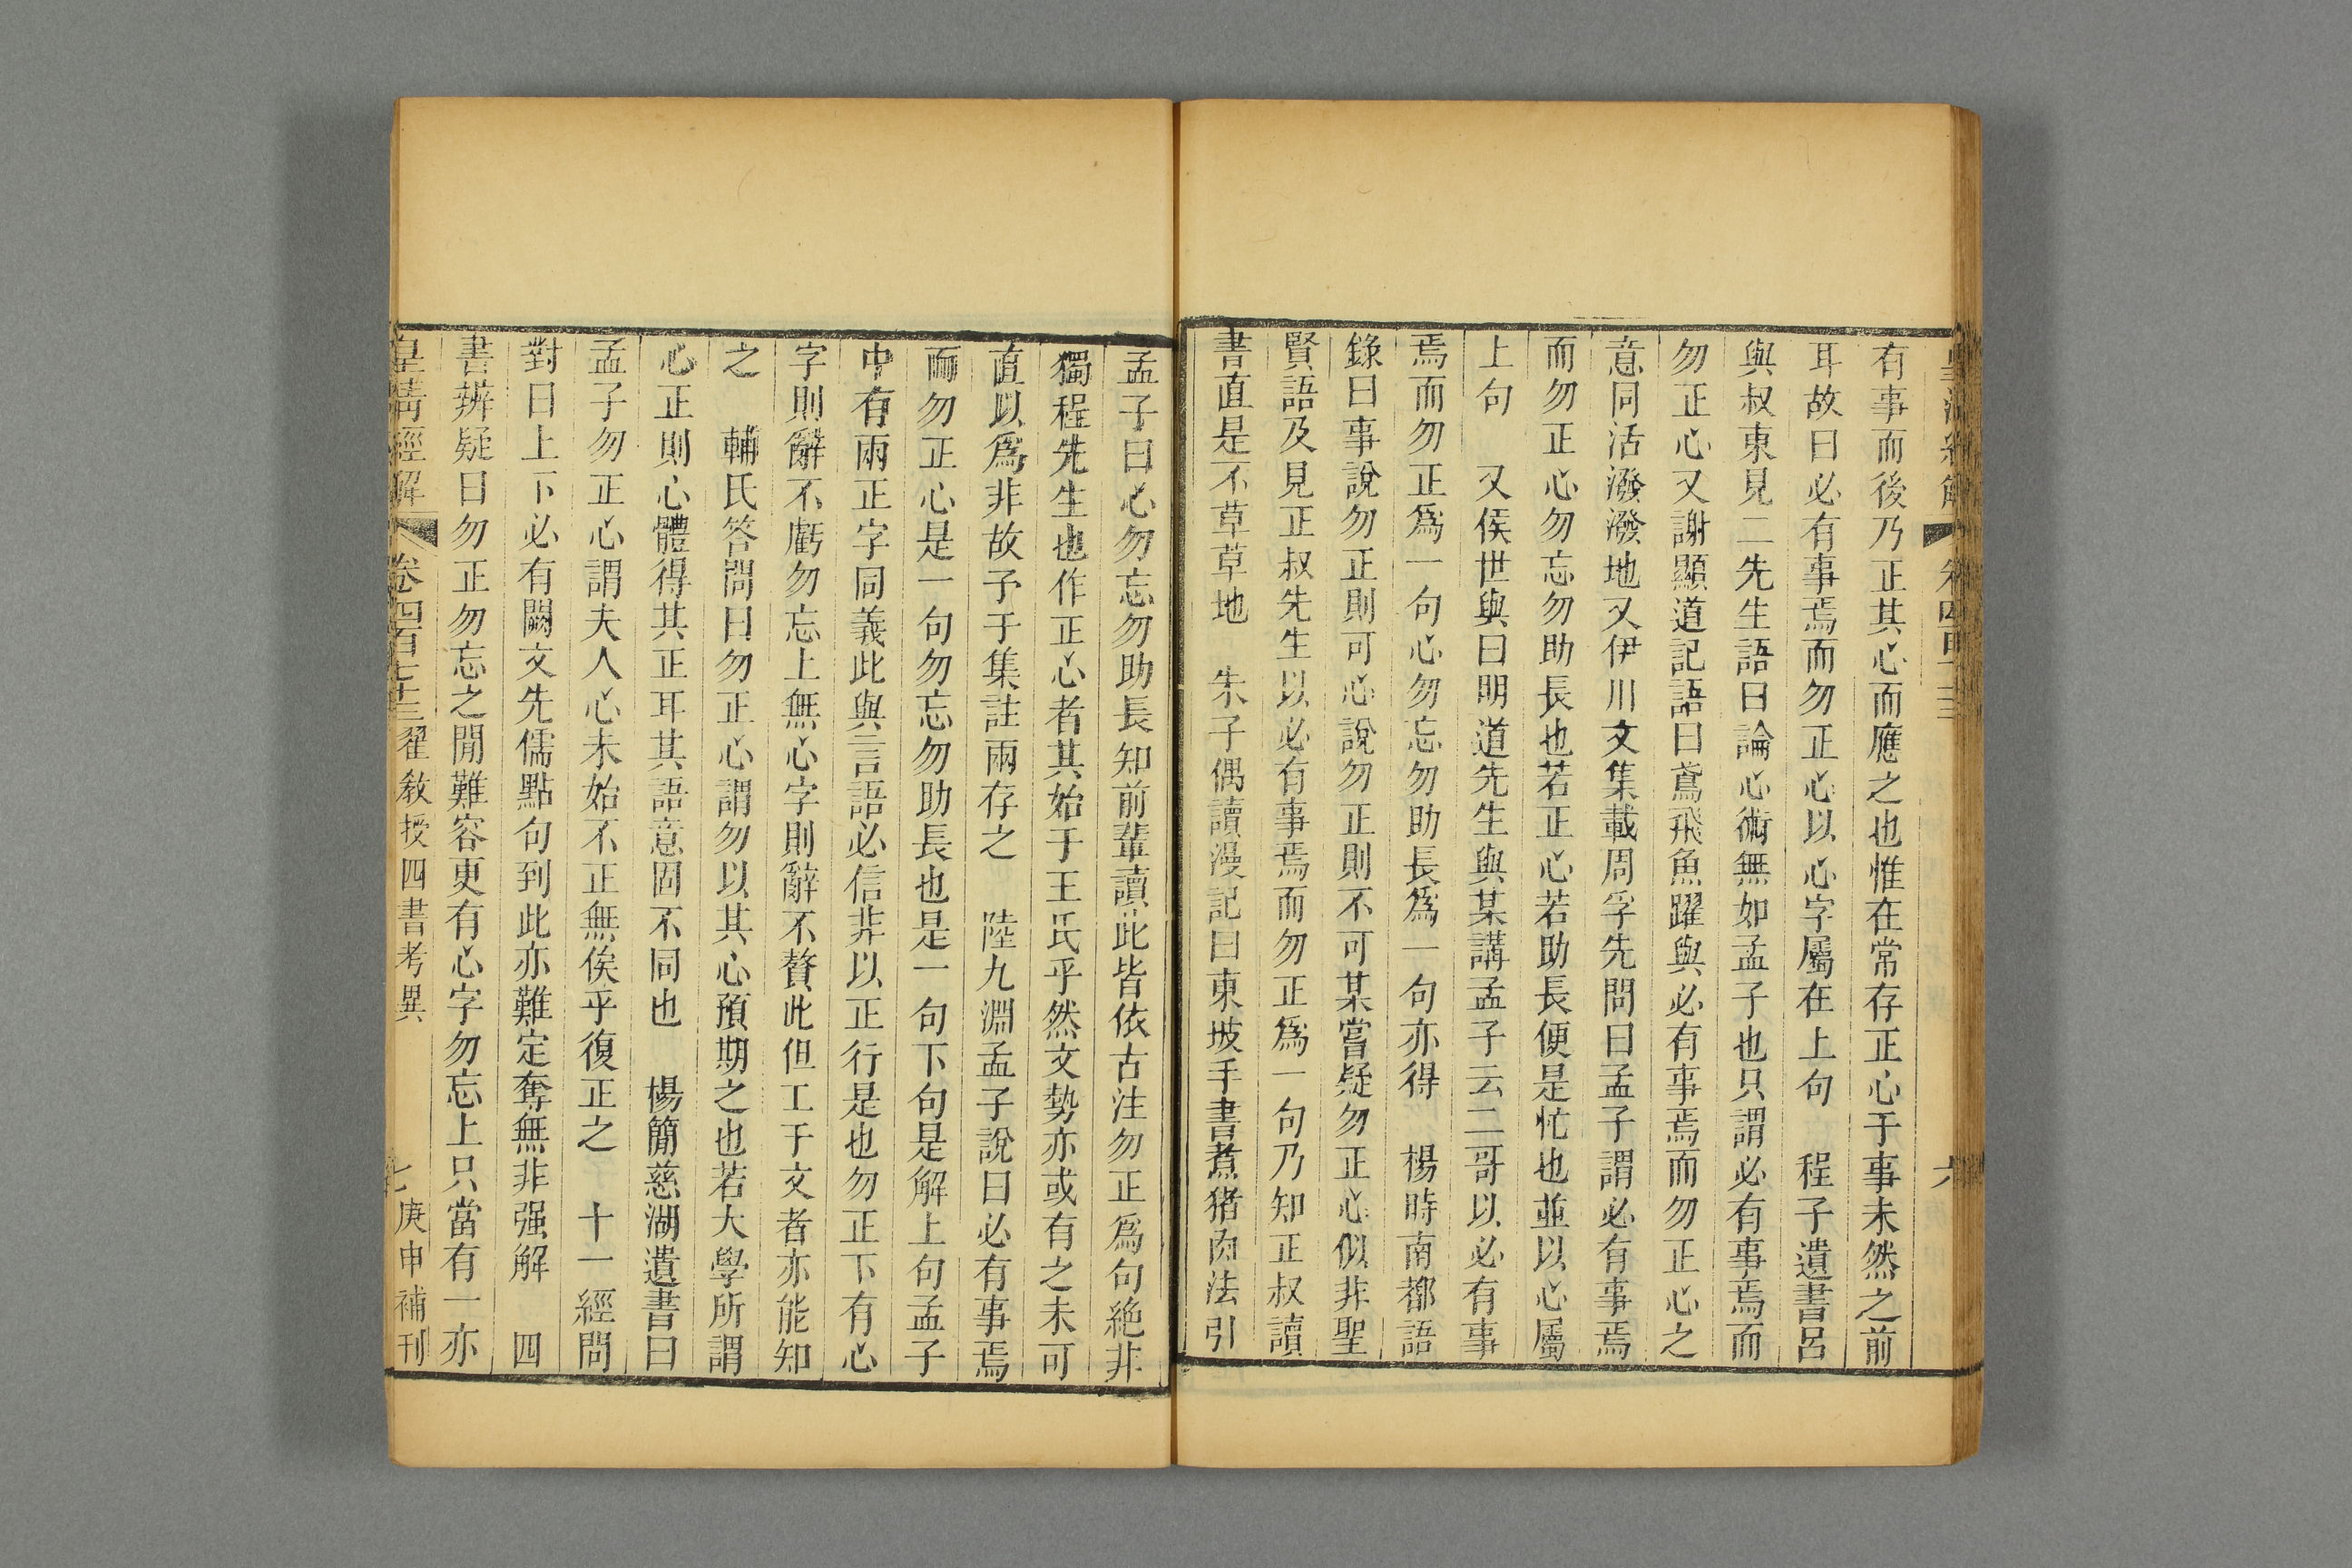 有事而後乃正其心而應之也惟在常存正心于事未然之前
耳故曰必有事焉而勿正心以心字屬在上句　程子遺書呂
與叔東見二先生語曰論心術無如孟子也只謂必有事焉而
勿正心又謝顯道記語曰鳶飛魚躍與必有事焉而勿正心之
意同活潑潑地又伊川文集載周孚先問曰孟子謂必有事焉
而勿正心勿忘勿助長也若正心若助長便是忙也並以心屬
上句　又侯世與曰明道先生與某講孟子云二哥以必有事
焉而勿正爲一句心勿忘勿助長爲一句亦得　楊時南都語
錄曰事說勿正則可心說勿正則不可某嘗疑勿正心似非聖
賢語及見正叔先生以必有事焉而勿正爲一句乃知正叔讀
書直是不草草地　朱子偶讀漫記曰東坡手書煮猪肉法引
孟子曰心勿忘勿助長知前輩讀此皆依古注勿正爲句絶非
獨程先生也作正心者其始于王氏乎然文勢亦或有之未可
直以爲非故予于集註兩存之　陸九淵孟子說曰必有事焉
而勿正心是一句勿忘勿助長也是一句下句是解上句孟子
中有兩正字同義此與言語必信非以正行是也勿正下有心
字則辭不虧勿忘上無心字則辭不贅此但工于文者亦能知
之　輔氏答問曰勿正心謂勿以其心預期之也若大學所謂
心正則心體得其正耳其語意固不同也　楊簡慈湖遺書曰
孟子勿正心謂夫人心未始不正無俟乎復正之　十一經問
對曰上下必有闕文先儒點句到此亦難定奪無非强解　四
書辨疑曰勿正勿忘之閒難容更有心字勿忘上只當有一亦
皇清經解　卷四百七十三翟敎授四書考異　七　庚申補刊